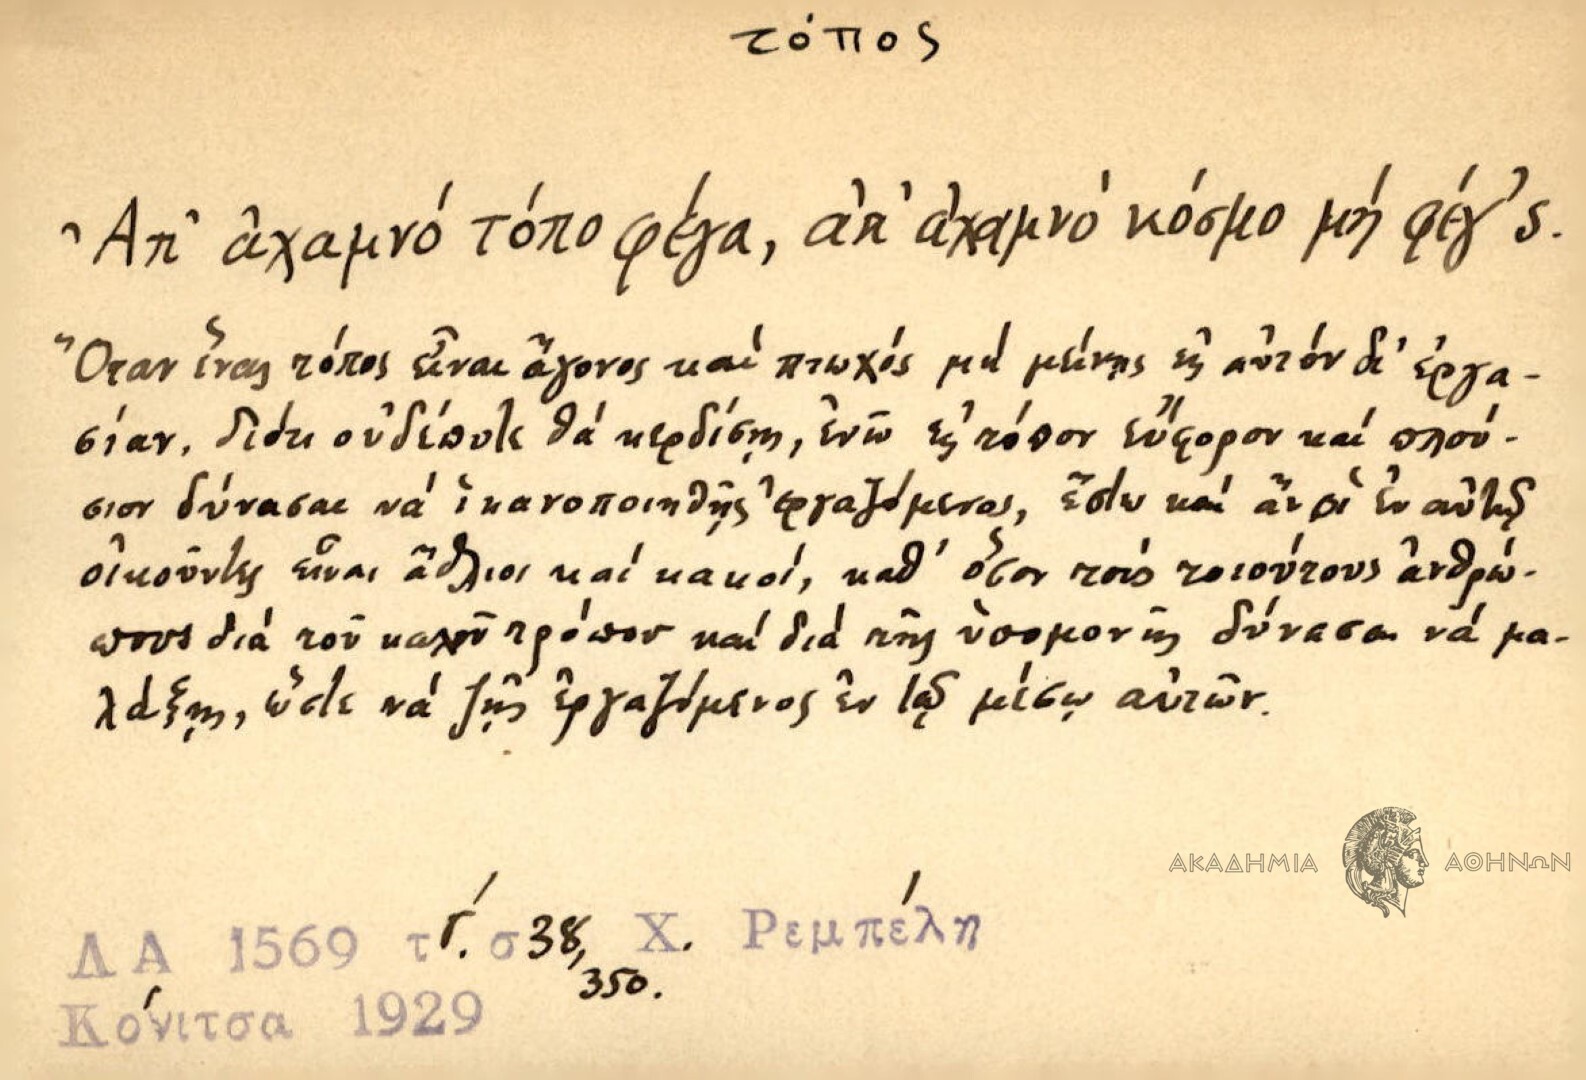 τόπος
Ἀπ' ἀχαμνό τόπο φέγα, ἀπ' ἀχαμνό κόσμο μή φέγ'ς.
Ὅταν ἕνας τόπος εἶναι ἄγονος καί πτωχός μή μείνῃς εἰς αὐτόν δι' ἐργα-
σίαν, διότι οὐδέποτε θά κερδίσῃς, ἐνῶ εἰς τόπον εὔφορον καί πλού-
σιον δύνασαι νά ἱκανοποιηθῇς ἐργαζόμενος, ἔστω καί ἄν οἱ ἐν αὐτῷ
οἰκοῦντες εἶναι ἄθλιοι καί κακοί, καθ' ὅσον τούς τοιούτους ἀνθρώ-
πους διά τοῦ καλοῦ τρόπου καί διά τῆς ὑπομονῆς δύνασαι νά μα-
λάξῃς, ὥστε νά ζῇς ἐργαζόμενος ἐν τῷ μέσῳ αὐτῶν.
ΑΚΑΔΗΜΙΑ ΑΘΗΝΩΝ
ΛΑ 1569 τ Γ΄. σ 38, Χ. Ρεμπέλη
350.
Κόνιτσα 1929